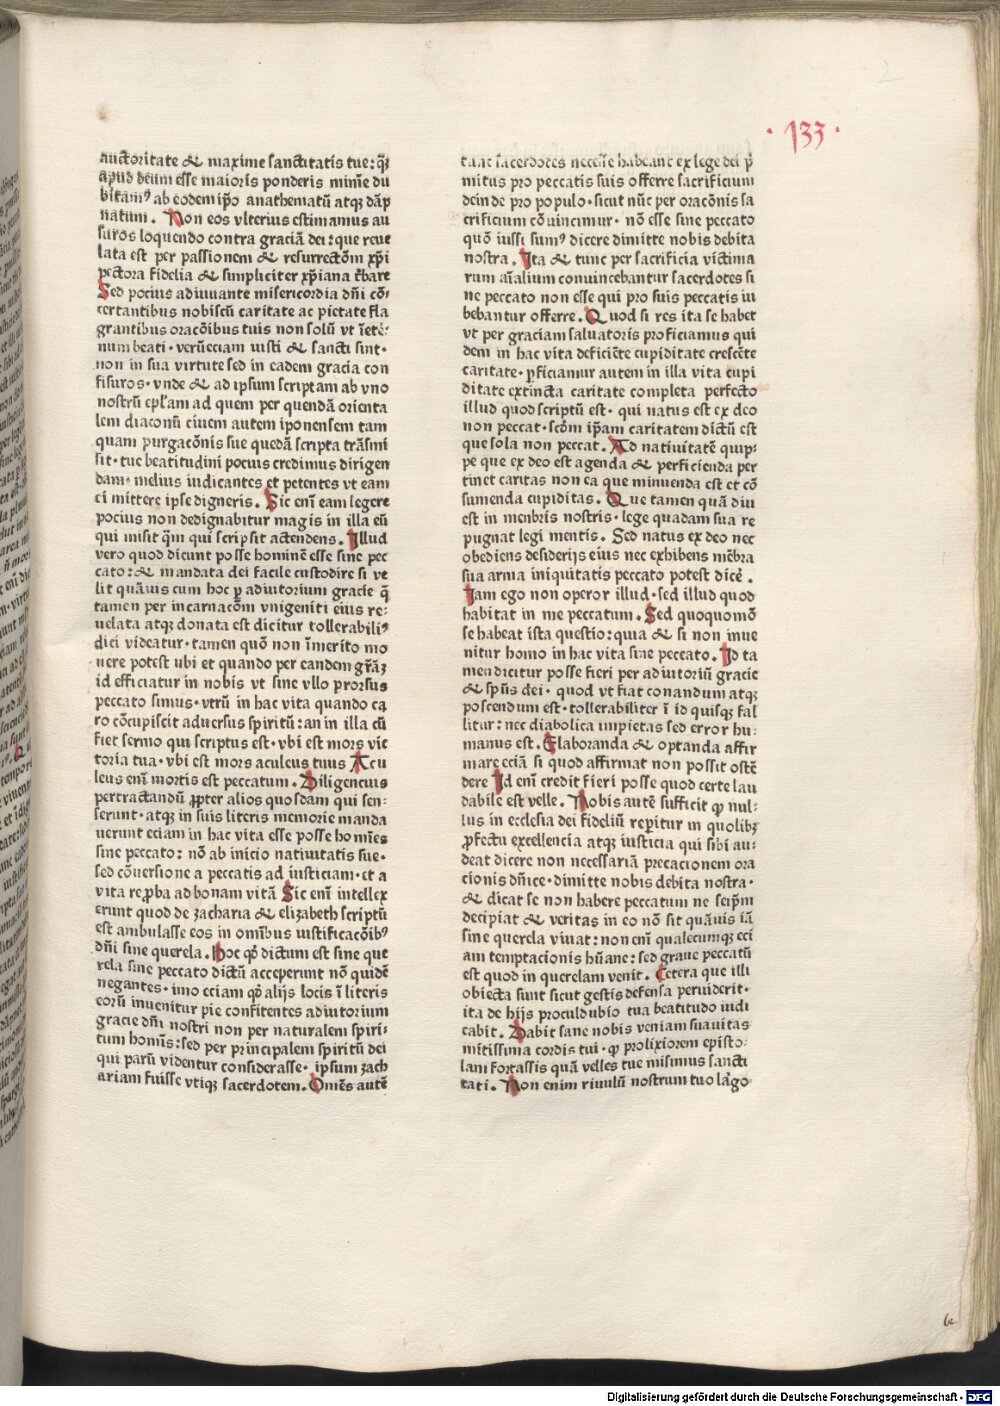 ·133·
auctoritate & maxime sanctitatis tue: qȝ
apud deum esse maioris ponderis minīe du
bitamꝰ ab eodem ip̄o anathematū atqȝ dāp
natum. Non eos vlterius estimamus au
suros loquendo contra graciā dei: que reue
lata est per passionem & resurrectōm xp̄i
pectora fidelia & simpliciter xp̄iana t̄bare
Sed pocius adiuuante misericordia dn̄i cō⸗
certantibus nobiscū caritate ac pietate fla
grantibus oracōibus tuis non solū vt īetē⸗
num beati· verūeciam iusti & sancti sint·
non in sua virtute sed in eadem gracia con
fisuros· vnde & ad ipsum scriptam ab vno
nostrū ep̄lam ad quem per quendā orienta
lem diaconū ciuem autem iponensem tam
quam purgacōnis sue quedā scripta trāsmi
sit· tue beatitudini pocius credimus dirigen
dam· melius iudicantes et petentes vt eam
ei mittere ipse digneris. Sic enī eam legere
pocius non dedignabitur magis in illa eū
qui misit q̄m qui scripsit actendens. Illud
vero quod dicunt posse hominē esse sine pec
cato: & mandata dei facile custodire si ve
lit quāuis cum hoc p̱ adiutorium gracie q̄
tamen per incarnacōm vnigeniti eius re⸗
uelata atqȝ donata est dicitur tollerabiliꝰ
dici videatur· tamen quō non īmerito mo
uere potest ubi et quando per eandem gr̄aȝ
id efficiatur in nobis vt sine vllo prorsus
peccato simus· vtrū in hac vita quando ca
ro cōcupiscit aduersus spiritū: an in illa cū
fiet sermo qui scriptus est· vbi est mors vic
toria tua· vbi est mors aculeus tuus Acu
leus enī mortis est peccatum. Diligencius
pertractandū ꝓpter alios quosdam qui sen⸗
serunt· atqȝ in suis literis memorie manda
uerunt eciam in hac vita esse posse homīes
sine peccato: nō ab inicio natiuitatis sue·
sed cōuersione a peccatis ad iusticiam· et a
vita reꝓba ad bonam vitā Sic enī intellex
erunt quod de zacharia & elizabeth scriptū
est ambulasse eos in omībus iustificacōibꝰ
dn̄i sine querela. Hoc qd̓ dictum est sine que
rela sine peccato dictū acceperunt nō quidē
negantes· imo eciam qd̓ alijs locis ī literis
eorū inuenitur pie confitentes adiutorium
gracie dn̄i nostri non per naturalem spiri⸗
tum homīs: sed per principalem spiritū dei
qui parū videntur considerasse· ipsum zach
ariam fuisse vtiqȝ sacerdotem. Omēs autē
tunc sacerdotes necesse habeant ex lege dei p̄
mitus pro peccatis suis offerre sacrificium
deinde pro populo· sicut nūc per oracōnis sa
crificium cōuincimur· nō esse sine peccato
quō iussi sumꝰ dicere dimitte nobis debita
nostra. Ita & tunc per sacrificia victima
rum aīalium conuincebantur sacerdotes si
ne peccato non esse qui pro suis peccatis iu
bebantur offerre. Quod si res ita se habet
vt per graciam saluatoris proficiamus qui
dem in hac vita deficiēte cupiditate crescēte
caritate· p̱ficiamur autem in illa vita cupi
ditate extincta caritate completa perfecto
illud quod scriptū est· qui natus est ex deo
non peccat· scd̄m ip̄am caritatem dictū est
que sola non peccat. Ad natiuitatē quip⸗
pe que ex deo est agenda & perficienda per
tinet caritas non ea que minuenda est et cō
sumenda cupiditas. Que tamen quā diu
est in menbris nostris· lege quadam sua re
pugnat legi mentis. Sed natus ex deo nec
obediens desiderijs eius nec exhibens mēbra
sua arma iniquitatis peccato potest dicē.
Iam ego non operor illud· sed illud quod
habitat in me peccatum. Sed quoquomō
se habeat ista questio: quia & si non inue
nitur homo in hac vita sine peccato. Id ta
men dicitur posse fieri per adiutoriū gracie
& spūs dei· quod vt fiat conandum atqȝ
poscendum est· tollerabiliter ī id quisqȝ fal
litur: nec diabolica impietas sed error hu⸗
manus est. Elaboranda & optanda affir
mare eciā si quod affirmat non possit ostē
dere Id enī credit fieri posse quod certe lau
dabile est velle. Nobis autē sufficit ꝙ nul⸗
lus in ecclesia dei fideliū rep̱itur in quolibȝ
ꝓfectu excellencia atqȝ iusticia qui sibi au⸗
deat dicere non necessariā precacionem ora
cionis dn̄ice· dimitte nobis debita nostra·
& dicat se non habere peccatum ne seip̄m
decipiat & veritas in eo nō sit quāuis iā
sine querela viuat: non enī qualecumqȝ eci
am temptacionis hūane: sed graue peccatū
est quod in querelam venit. Cetera que illi
obiecta sunt sicut gestis defensa peruiderit·
ita de hijs proculdubio tua beatitudo iudi
cabit. Dabit sane nobis veniam suauitas
mitissima cordis tui· ꝙ prolixiorem episto⸗
lam fortassis quā velles tue misimus sancti
tati. Non enim riuulū nostrum tuo la̓go
Digitalisierung gefördert durch die Deutsche Forschungsgemeinschaft · DFG